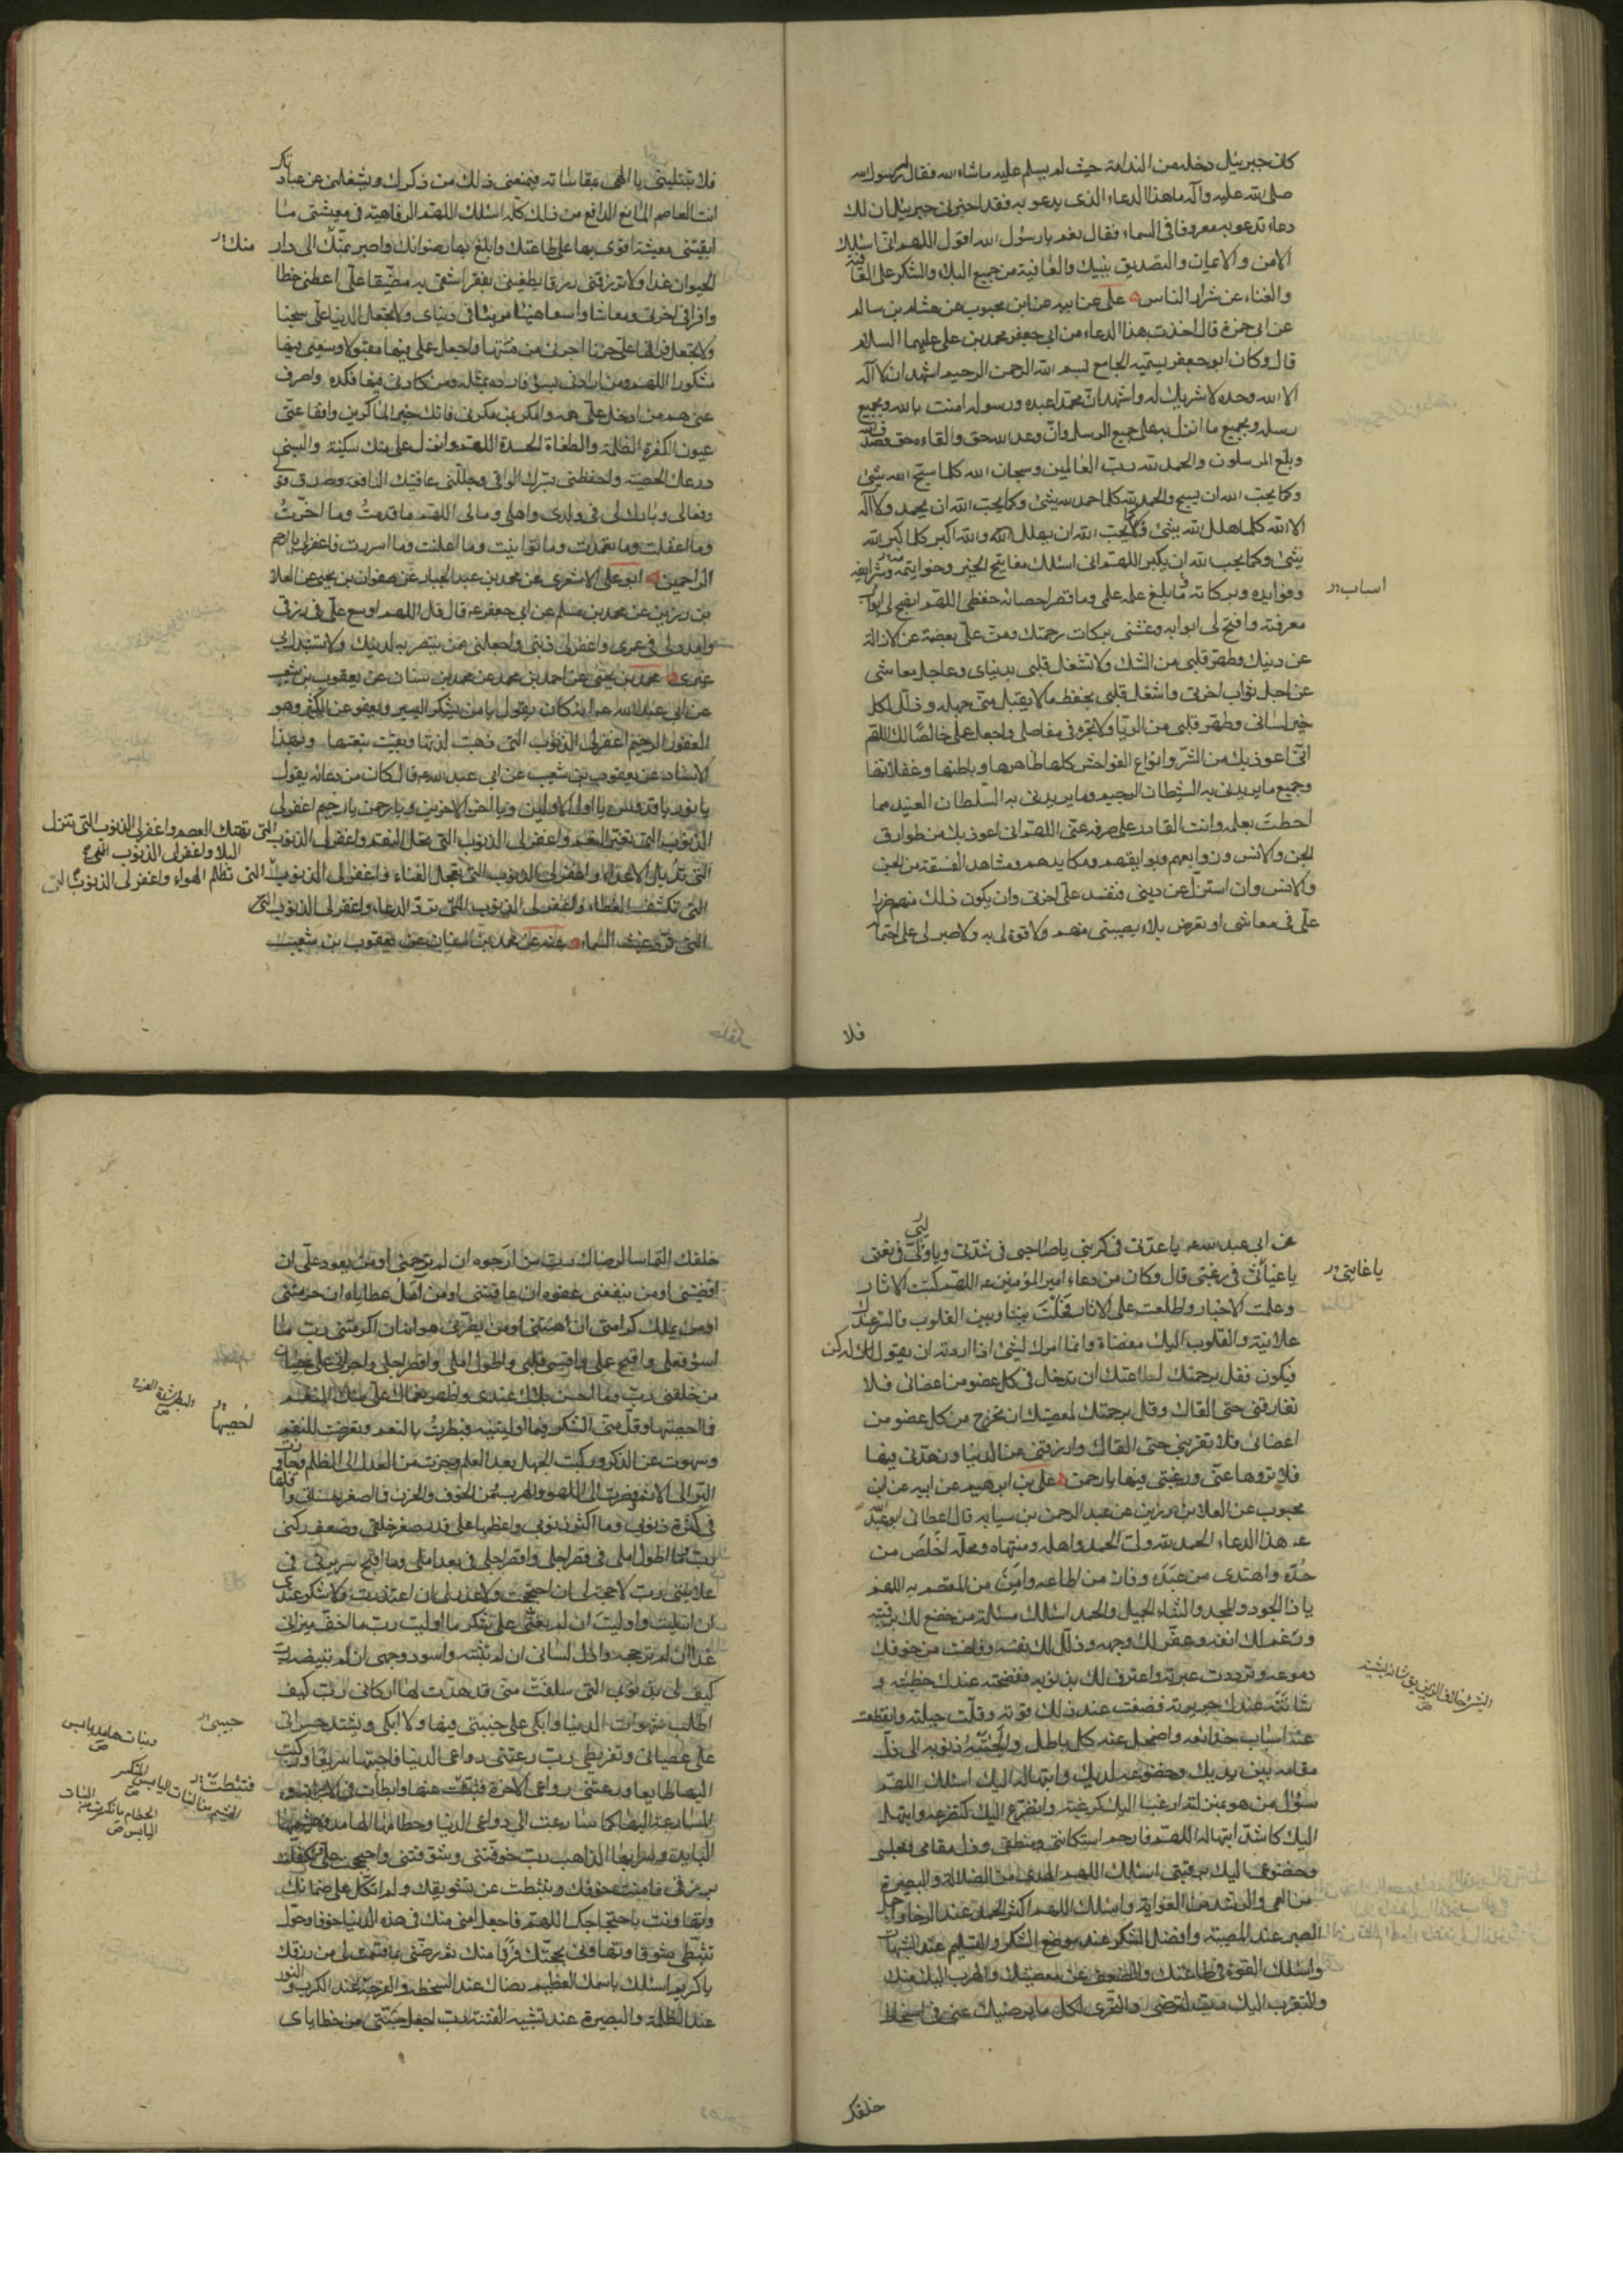 كان جبرئيل دخله من الندامة حيث لم يسلم عليه ما شاء الله فقال له رسول الله
صلى الله عليه وآله ما هذا الدعاء الذى يدعو به فقد اخبرنى جبرئيل ان لك
دعاء تدعو به معروفا فى السماء فقال نعم يا رسول الله اقول اللهم انى اسئلك
الامن والايمان والتصديق بنبيك والعافية من جميع البلاء والشكر على العافية
والغناء عن شرار الناس على عن ابيه عن ابن محبوب عن هشام بن سالم
عن ابى حمزة قال اخذت هذا الدعاء من ابى جعفر محمد بن على عليهما السلام
قال وكان ابو جعفر يسميه الجامع بسم الله الرحمن الرحيم اشهد ان لا اله
الا الله وحده لا شريك له واشهد ان محمدا عبده ورسوله امنت بالله وبجميع
رسله وبجميع ما انزل به على جميع الرسل وان وعد الله حق ولقاءه حق وصدق الله
وبلغ المرسلون والحمد لله رب العالمين وسبحان الله كلما سبح الله شئ
وكما يحب الله ان يسبح والحمد لله كلما حمد الله شئ وكما يحب الله ان يحمد ولا اله
الا الله كلما هلل الله شئ وكما يحب الله ان يهلل الله والله اكبر كلما كبر الله
شئ وكما يحب الله ان يكبر اللهم انى اسئلك مفاتيح الخير وخواتيمه وشرايعه
اسباب
وفوايده وبركاته ما بلغ علمه علمى وما قصر احصائه حفظى اللهم انهج لى ابواب
معرفته وافتح لى ابوابه وغشنى بركات رحمتك ومن على بعصمة عن الازالة
عن دينك وطهر قلبى من الشك ولا تشغل قلبى بدنياى وعاجل معاشى
عن اجل ثواب اخرتى واشغل قلبى بحفظ ما لا يقبل منى جهله وذلل لكل
خير لسانى وطهر قلبى من الريا ولا تجره فى مفاصلى واجعل عملى خالصا لك اللهم
انى اعوذ بك من الشر وانواع الفواحش كلها ظاهرها وباطنها وغفلاتها
وجميع ما يريدنى به الشيطان الرجيم وما يريدنى به السلطان العنيد مما
احطت بعلمه وانت القادر على صرفه عنى اللهم انى اعوذ بك من طوارق
الجن والانس وزوابعهم وبوايقهم ومكايدهم ومشاهد الفسقة من الجن
والانس وان استزل عن دينى فتفسد على اخرتى وان يكون ذلك منهم ضررا
على فى معاشى او تعرض بلاء يصيبنى منهم ولا قوة لى به ولا صبر لى على احتماله
فلا
فلا تبتلينى يا الهى بمقاساته فيمنعنى ذلك من ذكرك ويشغلنى عن عبادتك
انت العاصم المانع الدافع من ذلك كله اسئلك اللهم الرفاهية فى معيشتى ما
ابقيتنى معيشة اقوى بها على طاعتك وابلغ بها رضوانك واصير بمنك الى دار
منك
الحيوان غدا ولا ترزقنى رزقا يطغينى بفقر اشقى به مضيقا على اعطنى حظا
وافرا فى اخرتى ومعاشا واسعا هنيئا مريئا فى دنياى ولا تجعل الدنيا على سجنا
ولا تجعل فراقها على حزنا اجرنى من فتنتها واجعل عملى فيها مقبولا وسعيى فيها
مشكورا اللهم ومن ارادنى بسوء فارده بمثله ومن كادنى فيها فكده واصرف
عنى هم من ادخل على همه وامكر بمن مكر بى فانك خير الماكرين وافقا عنى
عيون الكفرة الظلمة والطغاة الحسدة اللهم وانزل على منك سكينة والبسنى
درعك الحصينة واحفظنى بسترك الواقى وجللنى عافيتك النافعة وصدق قولى
وفعالى وبارك لى فى ولدى واهلى ومالى اللهم ما قدمت وما اخرت
وما اغفلت وما تعمدت وما توانيت وما اعلنت وما اسررت فاغفر لى يا ارحم
الراحمين ابو على الاشعرى عن محمد بن عبد الجبار عن صفوان بن يحيى عن العلا
بن رزين عن محمد بن مسلم عن ابى جعفر عم قال قال اللهم اوسع على فى رزقى
وامدد لى فى عمرى واغفر لى ذنبى واجعلنى ممن ينتصر به لدينك ولا تستبدل بى
غيرى محمد بن يحيى عن احمد بن محمد عن محمد بن سنان عن يعقوب بن شعيب
عن ابى عبد الله عم انه كان يقول يا من يشكر اليسير ويعفو عن الكثير وهو
الغفور الرحيم اغفر لى الذنوب التى ذهبت لذتها وبقيت تبعتها وبهذا
الاسناد عن يعقوب بن شعيب عن ابى عبد الله عم قال كان من دعائه يقول
يا نور يا قدوس يا اول الاولين ويا اخر الاخرين ويا رحمن يا رحيم اغفر لى
الذنوب التى تغير النعم واغفر لى الذنوب التى تحل النقم واغفر لى الذنوب
التى تهتك العصم واغفر لى الذنوب التى تنزل
البلاء واغفر لى الذنوب التى
التى تديل الاعداء واغفر لى الذنوب التى تعجل الفناء واغفر لى الذنوب
التى تظلم الهواء واغفر لى الذنوب التى
التى تكشف الغطاء واغفر لى الذنوب التى ترد الدعاء واغفر لى الذنوب التى
التى ترد غيث السماء عنه عن محمد بن سنان عن يعقوب بن شعيب
عن ابى عبد الله عم يا عدتى فى كربتى يا صاحبى فى شدتى ويا وليى فى نعمتى
يا غياثى فى رغبتى قال وكان من دعاء امير المؤمنين عم اللهم كتبت الاثار
يا غايتى
وعلمت الاخبار واطلعت على الاثار فحلت بيننا وبين القلوب فالسر عندك
علانية والقلوب اليك مفضاة وانما امرك لشئ اذا اردته ان يقول له كن
فيكون فقل برحمتك لطاعتك ان تدخل فى كل عضو من اعضائى فلا
تفارقنى حتى القاك وقل برحمتك لمعصيتك ان تخرج من كل عضو من
اعضائى فلا تقربنى حتى القاك وارزقنى من الدنيا وزهدنى فيها
فلا تزوها عنى ورغبتى فيها يا رحمن على بن ابرهيم عن ابيه عن ابن
محبوب عن العلا بن رزين عن عبد الرحمن بن سيابه قال اعطانى ابو عبد الله
عم هذا الدعاء الحمد لله ولى الحمد واهله ومنتهاه ومحله اخلص من
وحده واهتدى من عبده وفاز من اطاعه وامن من المعتصم به اللهم
يا ذا الجود والمجد والثناء الجميل والحمد اسئلك مسئلة من خضع لك برقبته
ورغم لك انفه وعفر لك وجهه وذلل لك نفسه وفاضت من خوفك
دموعه وترددت عبرته واعترف لك بذنوبه وفضحته عندك خطيئته و
شانته عندك جريرته فضعفت عند ذلك قوته وقلت حيلته وانقطعت
عنه اسباب خدائعه واضمحل عنه كل باطل والجئته ذنوبه الى ذل
مقامه بين يديك وخضوعه لديك وابتهاله اليك اسئلك اللهم
سؤال من هو بمنزلته ارغب اليك كرغبته واتضرع اليك كتضرعه وابتهل
اليك كاشد ابتهاله اللهم فارحم استكانة منطقى وذل مقامى ومجلسى
وخضوعى اليك برقبتى اسئلك اللهم الهدى من الضلالة والبصيرة
من العمى والرشد من الغواية واسئلك اللهم اكثر الحمد عند الرخاء واجمل
الصبر عند المصيبة وافضل الشكر عند موضع الشكر والتسليم عند الشبهات
واسئلك القوة فى طاعتك والضعف عن معصيتك والهرب اليك منك
والتقرب اليك رب لترضى والتحرى لكل ما يرضيك عنى فى اسخاط
خلقك
خلقك التماسا لرضاك رب من ارجوه ان لم ترحمنى او من يعود على ان
اقصيتنى او من ينفعنى عفوه ان عاقبتنى او من آمل عطاياه ان حرمتنى
او من يملك كرامتى ان اهنتنى او من يضرنى هوانه ان اكرمتنى رب ما
اسوء فعلى واقبح عملى واقسى قلبى واطول املى واقصر اجلى واجرانى على عصيان
من خلقنى رب وما احسن بلائك عندى واظهر نعمائك على كثرت على منك النعم
فما احصيها وقل منى الشكر فيما اوليتنيه فبطرت بالنعم وتعرضت للنقم
احصيها
وسهوت عن الذكر وركبت الجهل بعد العلم وجزت من العدل الى الظلم وجاوزت
البر الى الاثم وصرت الى اللهو والهرب من الخوف والحزن فما اصغر حسناتى واقلها
فى كثرة ذنوبى وما اكثر ذنوبى واعظمها على قدر صغر خلقى وضعف ركنى
رب وما اطول املى فى قصر اجلى واقصر اجلى فى بعد املى وما اقبح سريرتى فى
علانيتى رب لا حجة لى ان احتججت ولا عذر لى ان اعتذرت ولا شكر عندى
ان ابتليت واوليت ان لم تعنى على شكر ما اوليت رب ما اخف ميزانى
غدا ان لم ترجحه وازل لسانى ان لم تثبته واسود وجهى ان لم تبيضه رب
كيف لى بذنوبى التى سلفت منى قد هدت لها اركانى رب كيف
اطلب شهوات الدنيا وابكى على خيبتى فيها ولا ابكى وتشتد حسراتى
على عصيانى وتفريطى رب دعتنى دواعى الدنيا فاجبتها سريعا وركنت
اليها طايعا ودعتنى دواعى الاخرة فتثبطت عنها وابطأت فى الاجابة و
فتثبطت
المسارعة اليها كما سارعت الى دواعى الدنيا وحطامها الهامد وهشيمها
البايد وسرابها الذاهب رب خوفتنى وشوقتنى واحتججت على وتكفلت
برزقى فامنت خوفك وتثبطت عن تشويقك ولم اتكل على ضمانك
وتهاونت باحتجاجك اللهم فاجعل امنى منك فى هذه الدنيا خوفا وحول
تثبطى شوقا وتهاونى بحجتك فرقا منك ثم رضنى بما قسمت لى من رزقك
يا كريم اسئلك باسمك العظيم رضاك عند السخطة والفرجة عند الكربة والنور
عند الظلمة والبصيرة عند تشبيه الفتنة رب اجعل جنتى من خطاياى